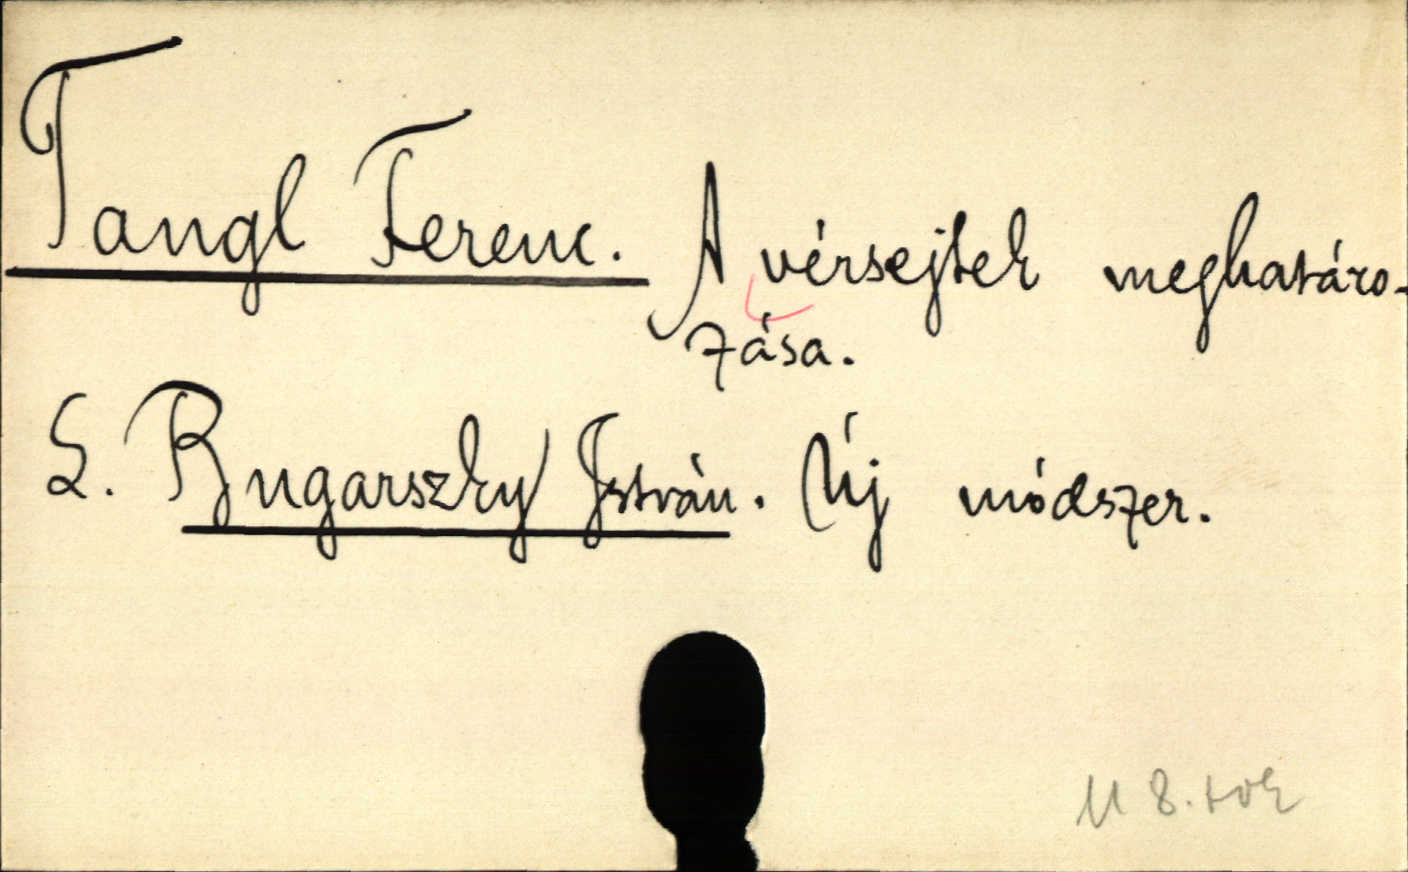 Tangl Ferenc. A vérsejtek meghatáro-
zása.
L. Bugarszky István. Új módszer.